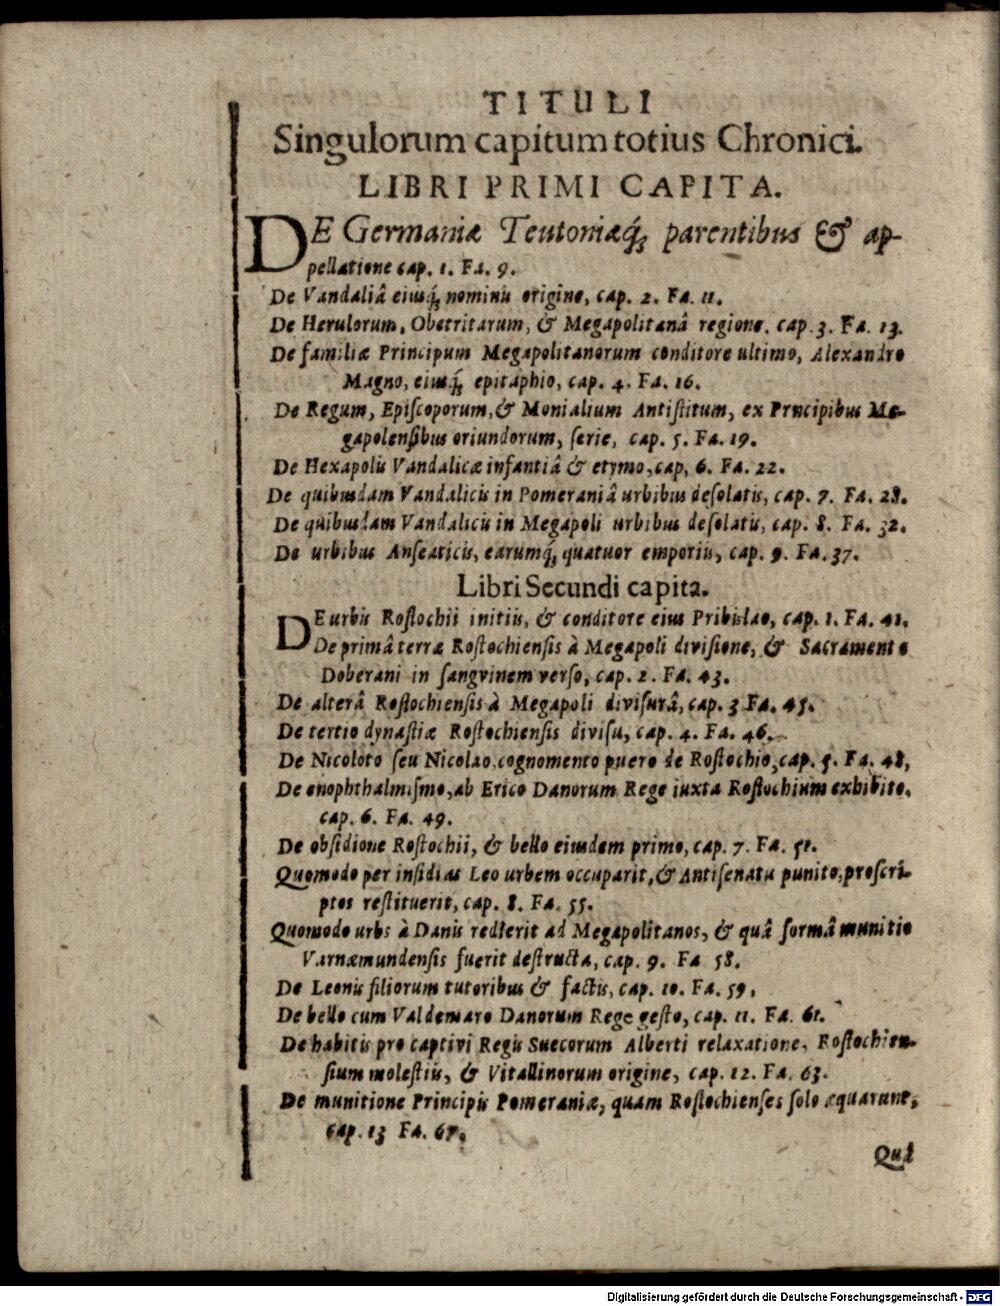 TITULI
Singulorum capitum totius Chronici.
LIBRI PRIMI CAPITA.
DE Germaniæ Teutoniæq́; parentibus & ap-
pellatione cap. 1. Fa. 9.
De Vandaliâ eiusq́; nominis origine, cap. 2. Fa. 11.
De Herulorum, Obetritarum, & Megapolitanâ regione. cap. 3. Fa. 13.
De familiæ Principum Megapolitanorum conditore ultimo, Alexandro
Magno, eiusq́; epitaphio, cap. 4. Fa. 16.
De Regum, Epiſcoporum, & Monialium Antiſtitum, ex Prncipibus Me-
gapolenſibus oriundorum, ſerie, cap. 5. Fa. 19.
De Hexapolis Vandalicæ infantiâ & etymo, cap, 6. Fa. 22.
De quibusdam Vandalicis in Pomeraniâ urbibus deſolatis, cap. 7. Fa. 28.
De quibusdam Vandalicis in Megapoli urbibus deſolatis, cap. 8. Fa. 32.
De urbibus Anſeaticis, earumq́; quatuor emporiis, cap. 9. Fa. 37.
Libri Secundi capita.
DE urbis Roſtochii initiis, & conditore eius Pribislao, cap. 1. Fa. 41.
De primâ terræ Roſtochienſis à Megapoli diviſione, & Sacramento
Doberani in ſangvinem verſo, cap. 2. Fa. 43.
De alterâ Roſtochienſis à Megapoli diviſurâ, cap. 3 Fa. 45.
De tertio dynaſtiæ Roſtochienſis diviſu, cap. 4. Fa. 46.
De Nicoloto ſeu Nicolao, cognomento puero de Roſtochio, cap. 5. Fa. 48,
De enophthalmiſmo, ab Erico Danorum Rege iuxta Roſtochium exhibito.
cap. 6. Fa. 49.
De obſidione Roſtochii, & bello eiusdem primo, cap. 7. Fa. 51.
Quomodo per inſidias Leo urbem occuparit, & Antiſenatu punito, proſcri-
ptos reſtituerit, cap. 8. Fa. 55.
Quomodo urbs à Danis redierit ad Megapolitanos, & quâ formâ munitio
Varnæmundenſis fuerit deſtructa, cap. 9. Fa 58.
De Leonis filiorum tutoribus & factis, cap. 10. Fa. 59,
De bello cum Valdemaro Danorum Rege geſto, cap. 11. Fa. 61.
De habitis pro captivi Regis Suecorum Alberti relaxatione, Roſtochien-
ſium moleſtiis, & Vitallinorum origine, cap. 12. Fa. 63.
De munitione Principis Pomeraniæ, quam Roſtochienſes ſolo æquarunt,
cap. 13 Fa. 67.
Quâ
Digitalisierung gefördert durch die Deutsche Forschungsgemeinschaft - DFG